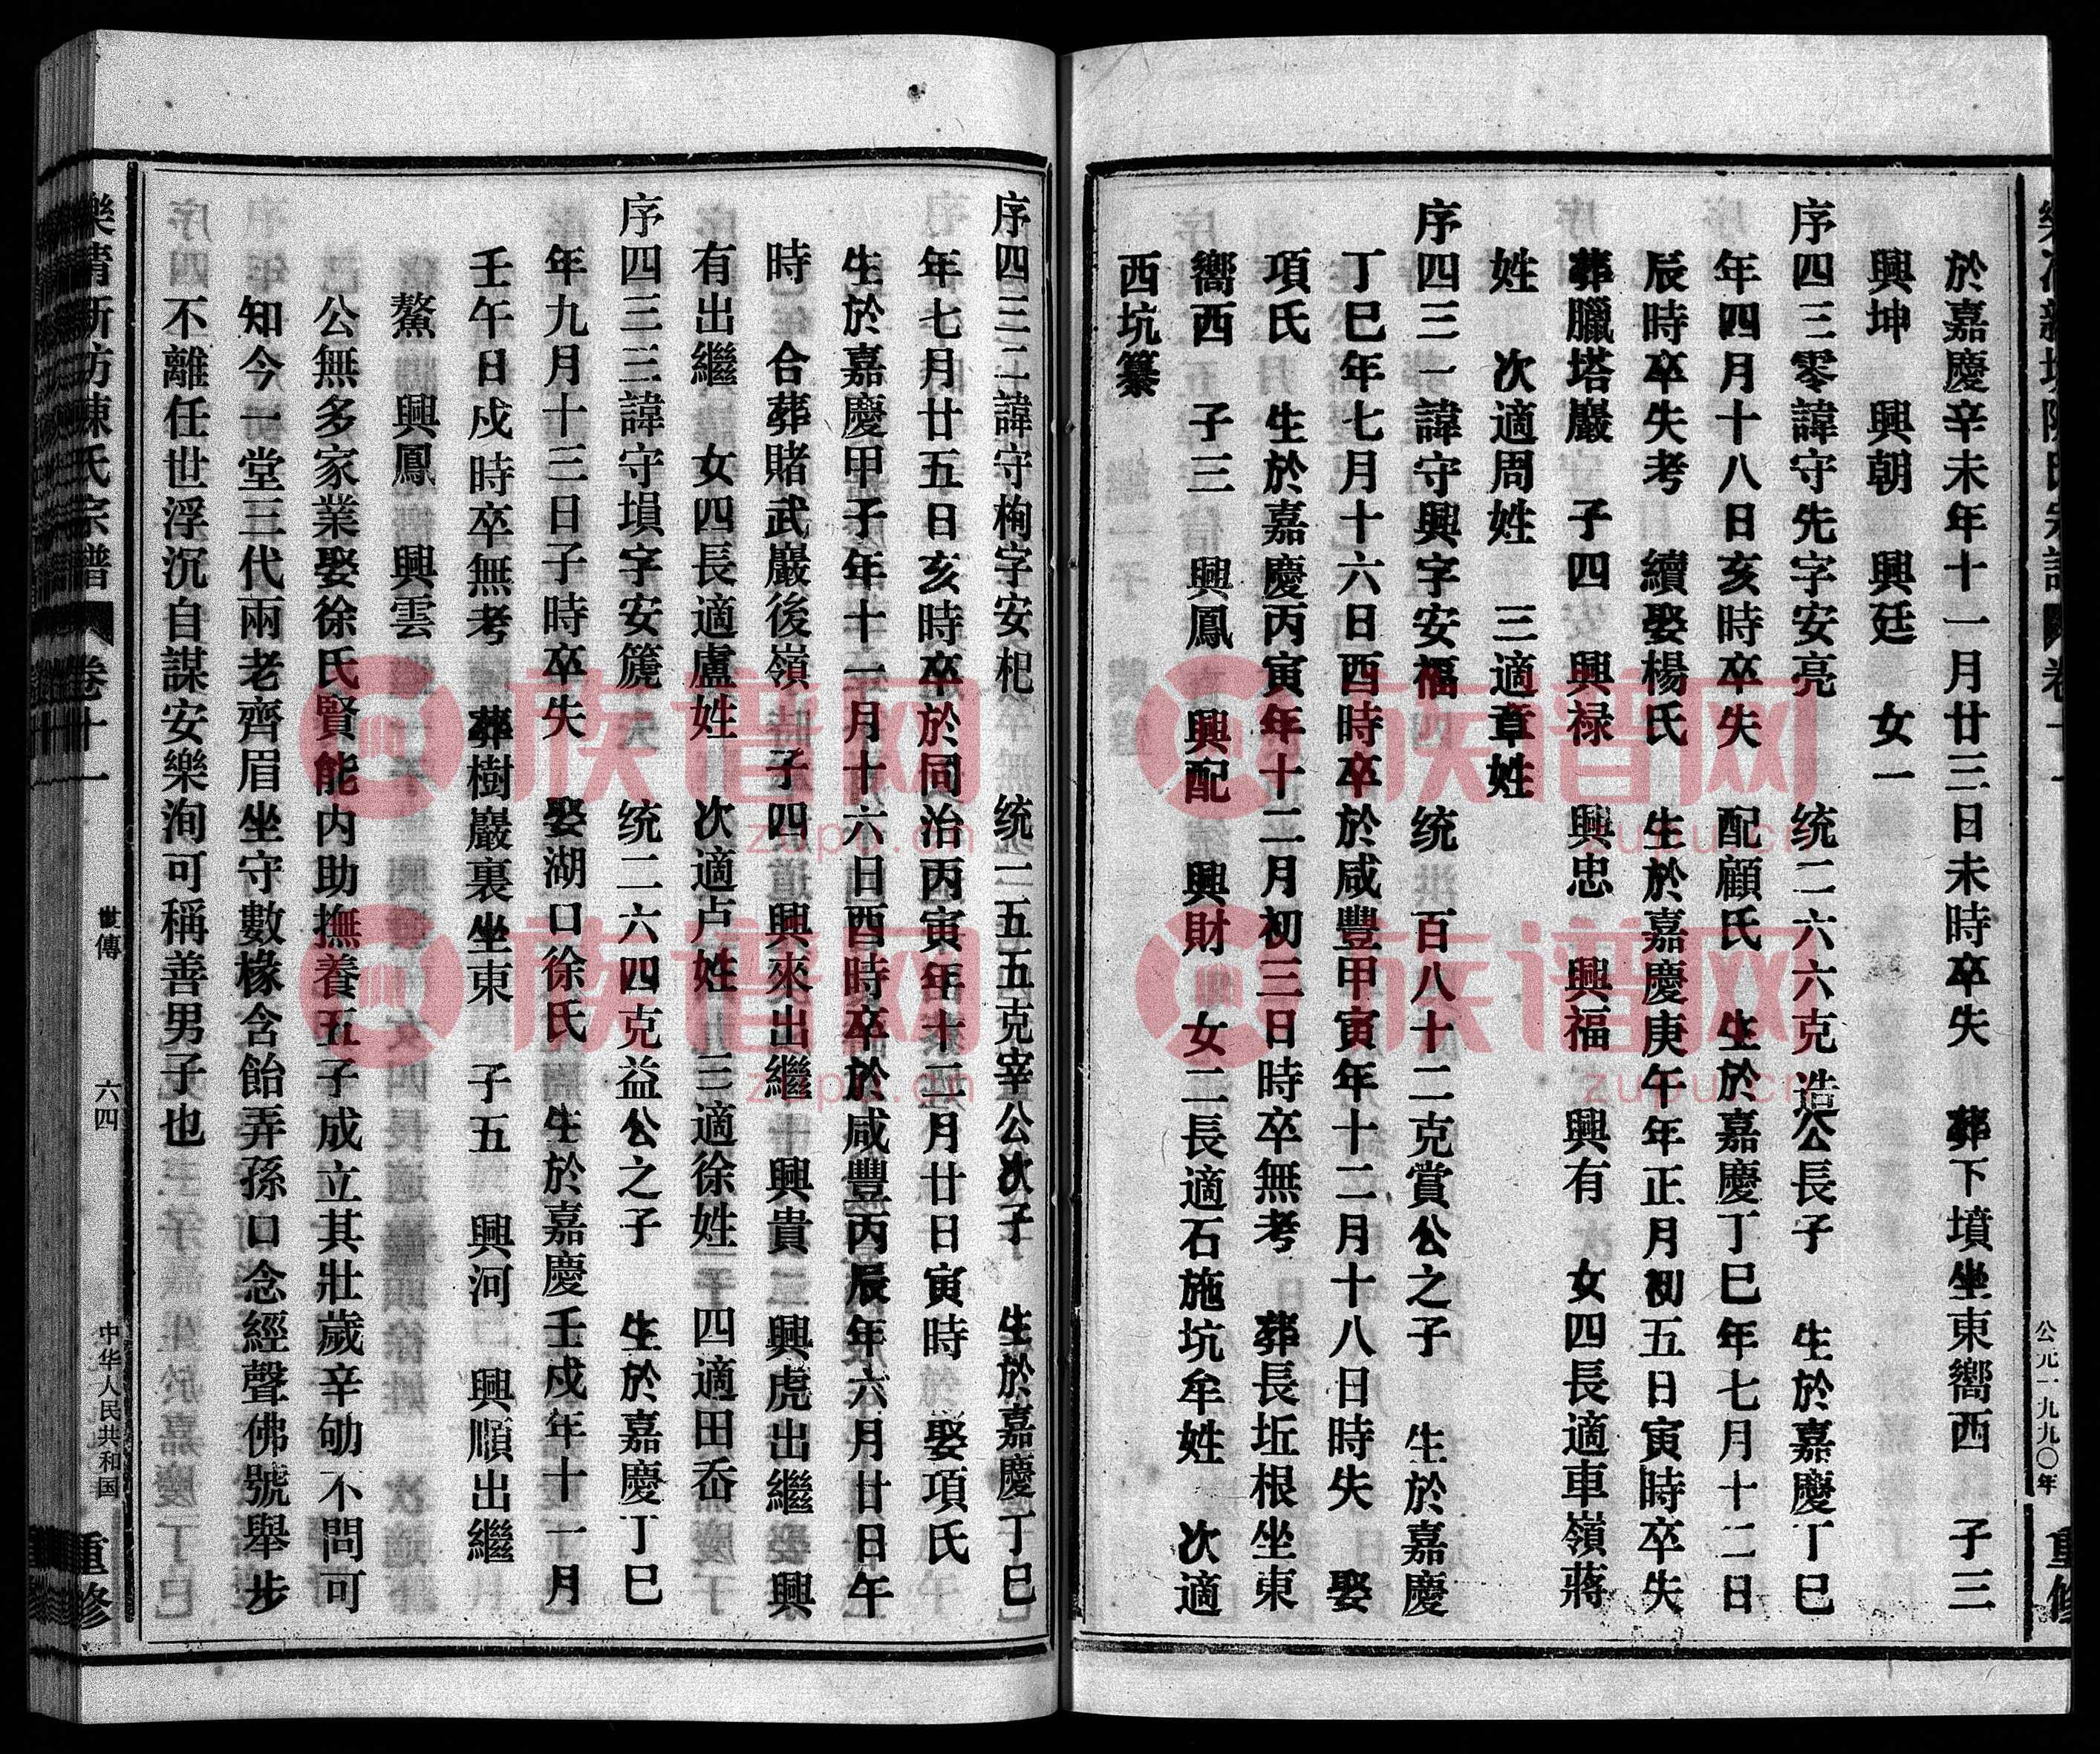 於嘉慶辛未年十一月廿三日未時卒失 葬下墳坐東嚮西 子三
興坤 興朝 興廷 女一
序四三零諱守先字安亮 统二六六克造公長子 生於嘉慶丁巳
年四月十八日亥時卒失 配顧氏 生於嘉慶丁巳年七月十二日
辰時卒失考 續娶楊氏 生於嘉慶庚午年正月初五日寅時卒失
葬臘塔巖 子四 興禄 興忠 興福 興有 女四長適車嶺蔣
姓 次適周姓 三適章姓
序四三一諱守興字安福 统 百八十二克賞公之子 生於嘉慶
丁巳年七月十六日酉時卒於咸豐甲寅年十二月十八日時失 娶
項氏 生於嘉慶丙寅年十二月初三日時卒無考 葬長坵根坐東
嚮西 子三 興鳳 興配 興財 女二長適石施坑牟姓 次適
西坑纂
公元一九九〇年
重修
序四三二諱守栒字安杞 统二五五克宰公次子 生於嘉慶丁巳
年七月廿五日亥時卒於同治丙寅年十二月廿日寅時 娶項氏
生於嘉慶甲子年十一月十六日酉時卒於咸豐丙辰年六月廿日午
時 合葬賭武巖後嶺 子四 興來出繼 興貴 興虎出繼 興
有出繼 女四長適盧姓 次適卢姓 三適徐姓 四適田岙
序四三三諱守塤字安篪 统二六四克益公之子 生於嘉慶丁巳
年九月十三日子時卒失 娶湖口徐氏 生於嘉慶壬戌年十一月
壬午日戍時卒無考 葬樹巖裏坐東 子五 興河 興順出繼
興鰲 興鳳 興雲
公無多家業娶徐氏賢能内助撫養五子成立其壯歲辛劬不問可
知今一堂三代兩老齊眉坐守數椽含飴弄孫口念經聲佛號舉步
不離任世浮沉自謀安樂洵可稱善男子也
樂清新坊陳氏宗譜 卷十一 世傳 六四 中华人民共和国 重修
族谱网
zupu.cn
族谱网
zupu.cn
族谱网
zupu.cn
族谱网
zupu.cn